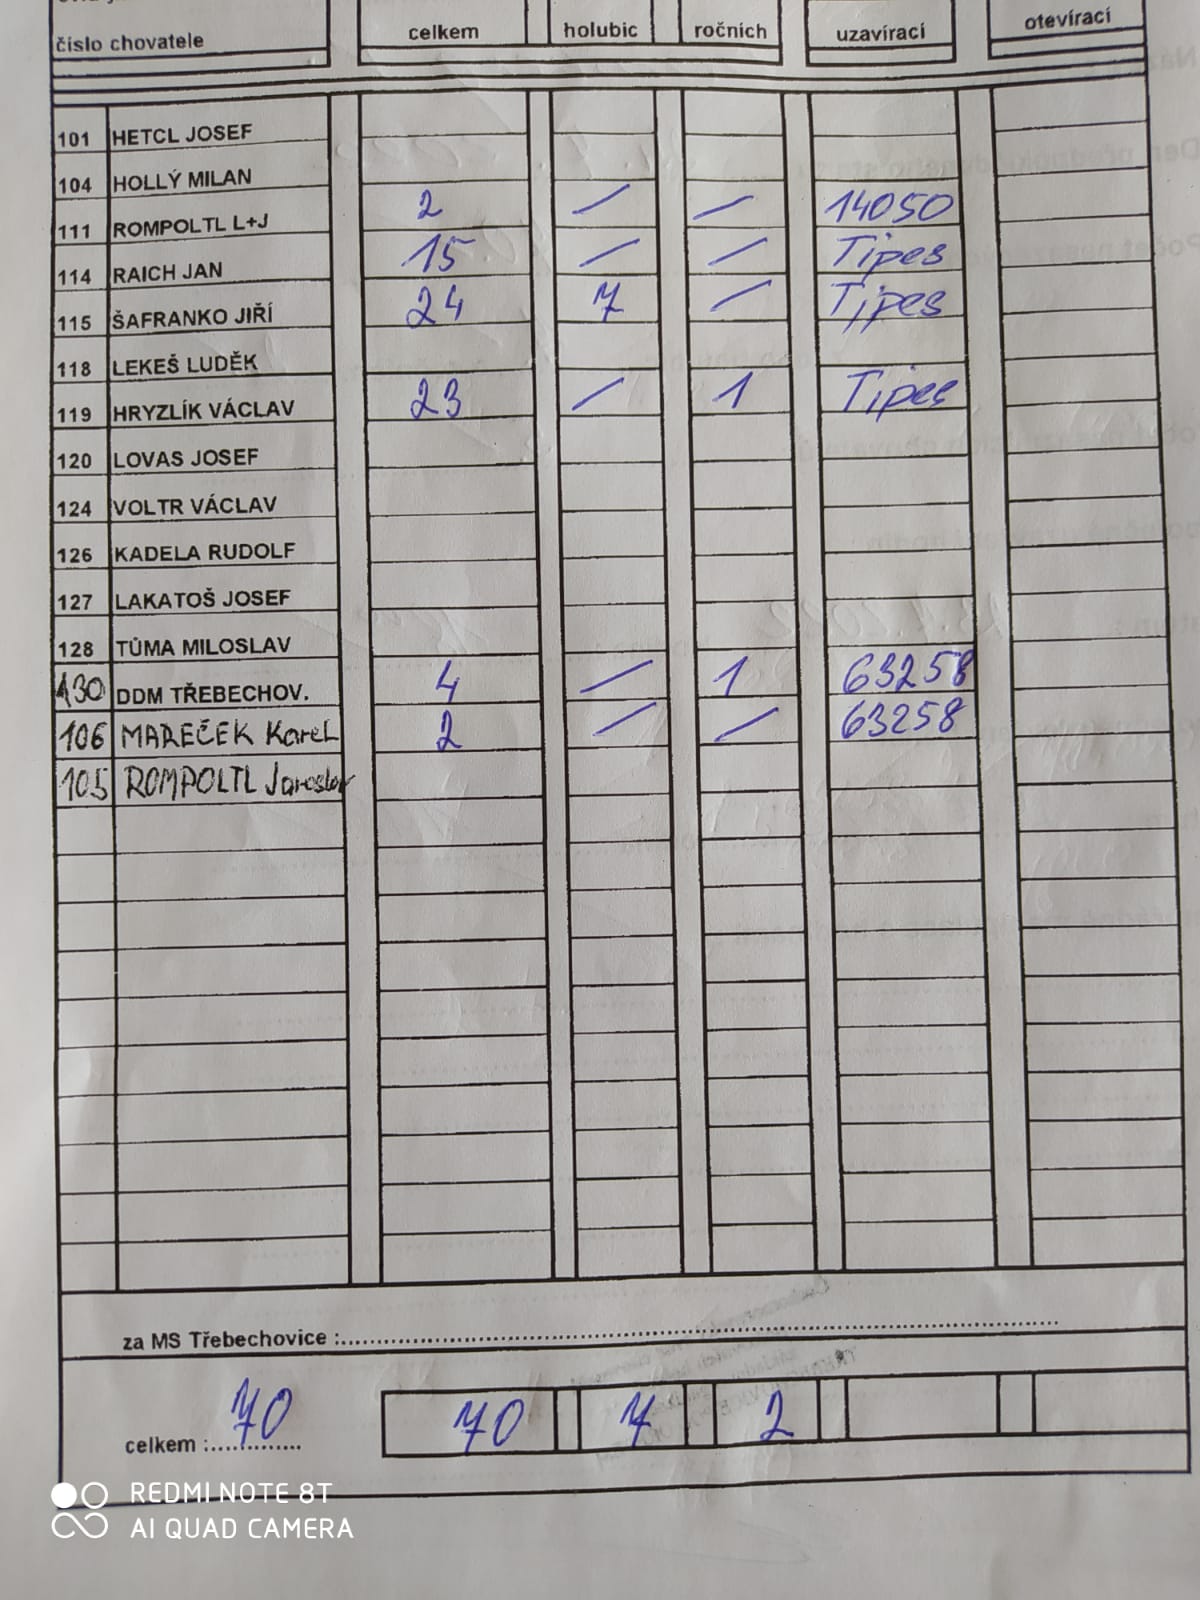 číslo chovatele celkem holubic ročních uzavírací otevírací
101 HETCL JOSEF
104 HOLLÝ MILAN
111 ROMPOLTL L+J 2 / / 14050
114 RAICH JAN 15 / / Tipes
115 ŠAFRANKO JIŘÍ 24 7 / Tipes
118 LEKEŠ LUDĚK
119 HRYZLÍK VÁCLAV 23 / 1 Tipes
120 LOVAS JOSEF
124 VOLTR VÁCLAV
126 KADELA RUDOLF
127 LAKATOŠ JOSEF
128 TŮMA MILOSLAV
130 DDM TŘEBECHOV. 4 / 1 63258
106 MAREČEK Karel 2 / / 63258
105 ROMPOLTL Jaroslav
za MS Třebechovice :
celkem : 70 70 7 2
REDMI NOTE 8T
AI QUAD CAMERA